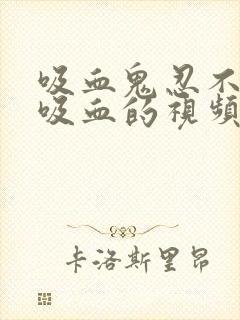 吸血鬼忍不
吸血的視頻
卡洛斯里昂